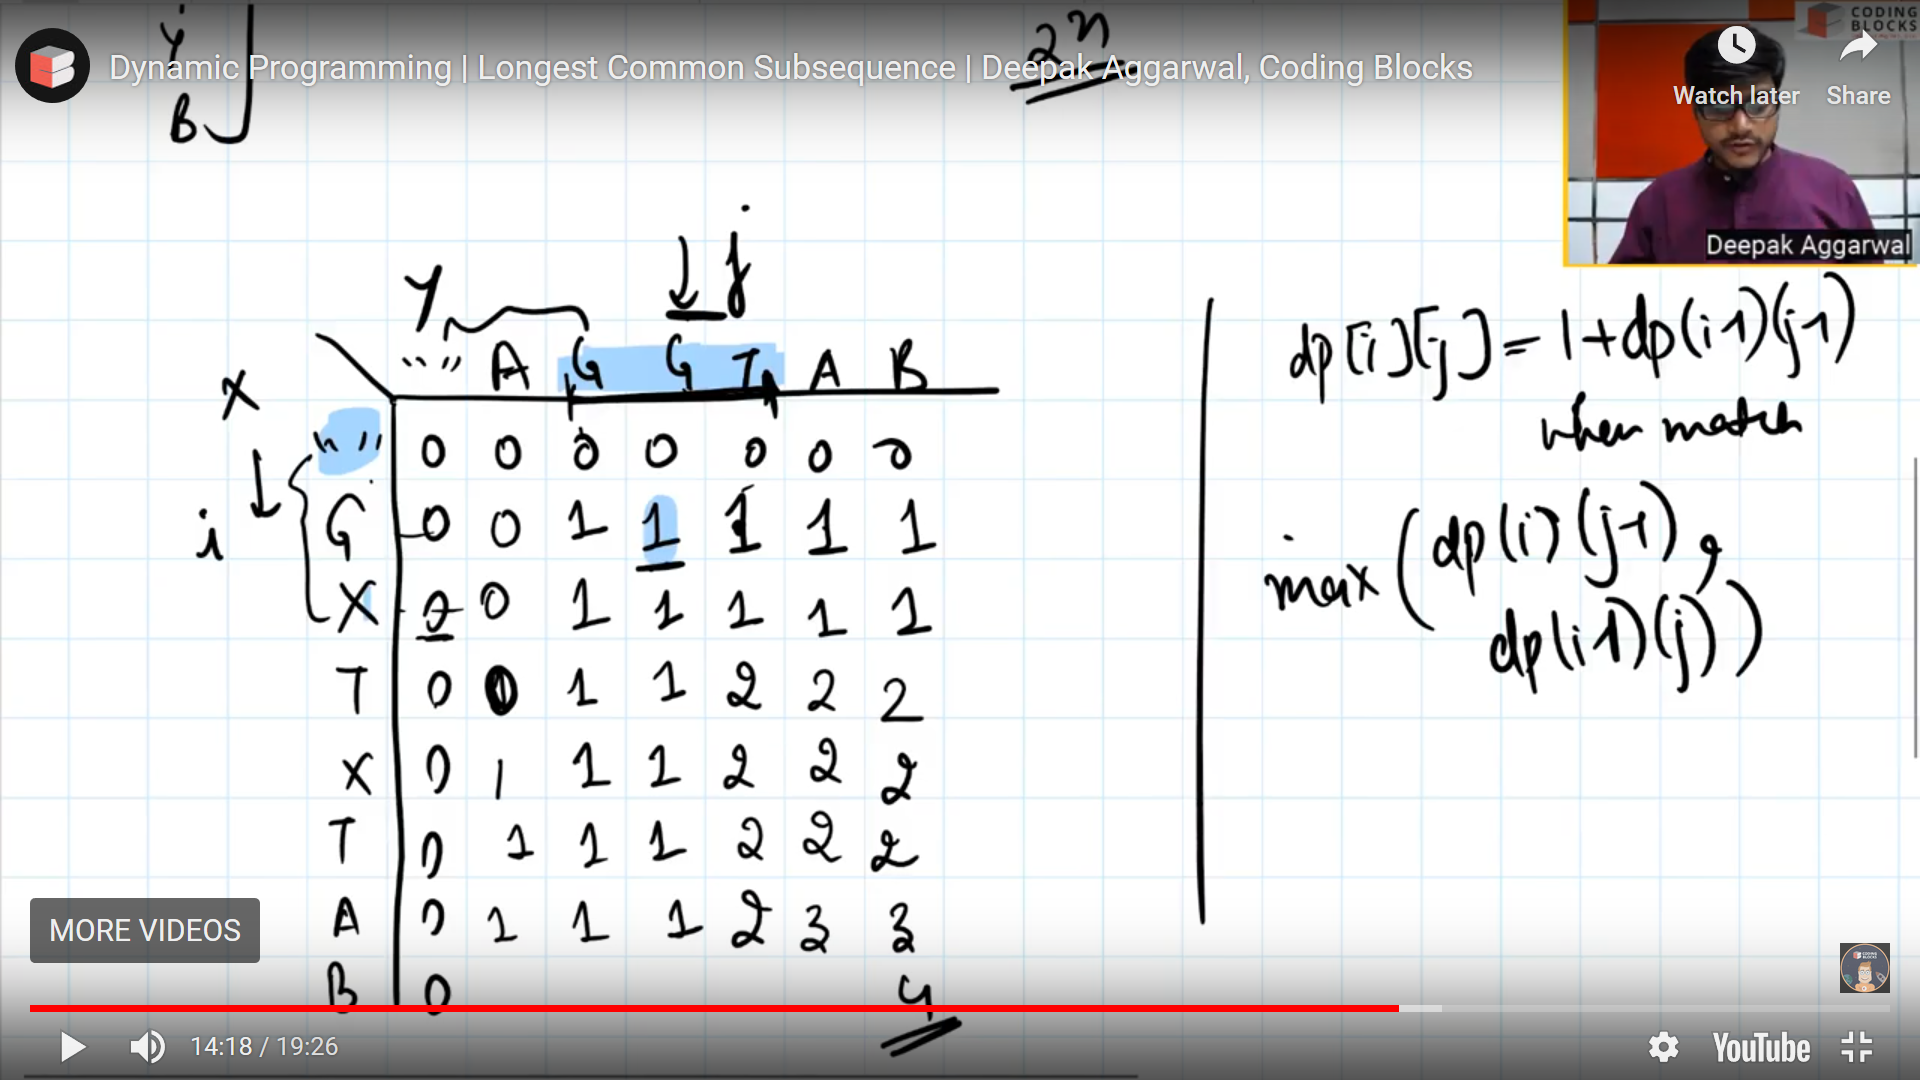 y
B
2ⁿ
CODING
BLOCKS
Dynamic Programming | Longest Common Subsequence | Deepak Aggarwal, Coding Blocks
Watch later
Share
Deepak Aggarwal
j
Y
X
i
"" A G G T A B
"" 0 0 0 0 0 0 0
G 0 0 1 1 1 1 1
X 0 0 1 1 1 1 1
T 0 0 1 1 2 2 2
X 0 1 1 1 2 2 2
T 0 1 1 1 2 2 2
A 0 1 1 1 2 3 3
B 0 4
dp[i][j] = 1+dp(i-1)(j-1)
when match
max(dp(i)(j-1),
dp(i-1)(j))
MORE VIDEOS
14:18 / 19:26
YouTube